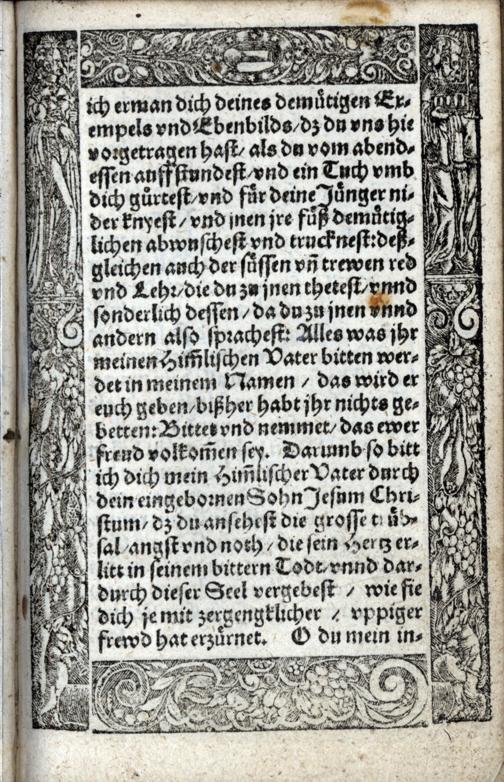 ich erman dich deines demuͤtigen Ex-
empels vnd Ebenbilds/ dz du vns hie
vorgetragen hast/ als du vom abend-
essen auffstundest/ vnd ein Tuch vmb
dich guͤrtest/ vnd fuͤr deine Juͤnger ni-
der knyest/ vnd jnen jre fuͤß demuͤtig-
lichen abwuschest vnd trucknest: deß-
gleichen auch der suͤssen vn̄ trewen red
vnd Lehr/ die du zu jnen thetest/ vnnd
sonderlich dessen/ da du zu jnen vnnd
andern also sprachest: Alles was jhr
meinen Him̄lischen Vater bitten wer-
det in meinem Namen / das wird er
euch geben/ bißher habt jhr nichts ge-
betten: Bittet vnd nemmet/ das ewer
freud volkom̄en sey. Darumb so bitt
ich dich mein Him̄lischer Vater durch
dein eingebornen Sohn Jesum Chri-
stum/ dz du ansehest die grosse truͤb-
sal/ angst vnd noth/ die sein Hertz er-
litt in seinem bittern Todt/ vnnd dar-
durch dieser Seel vergebest / wie sie
dich je mit zergengklicher / vppiger
frewd hat erzuͤrnet. O du mein in-